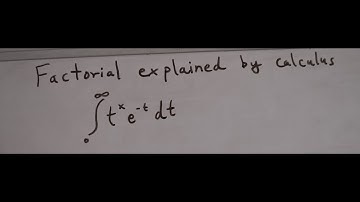 Factorial explained by calculus
∫₀^∞ tˣ e⁻ᵗ dt